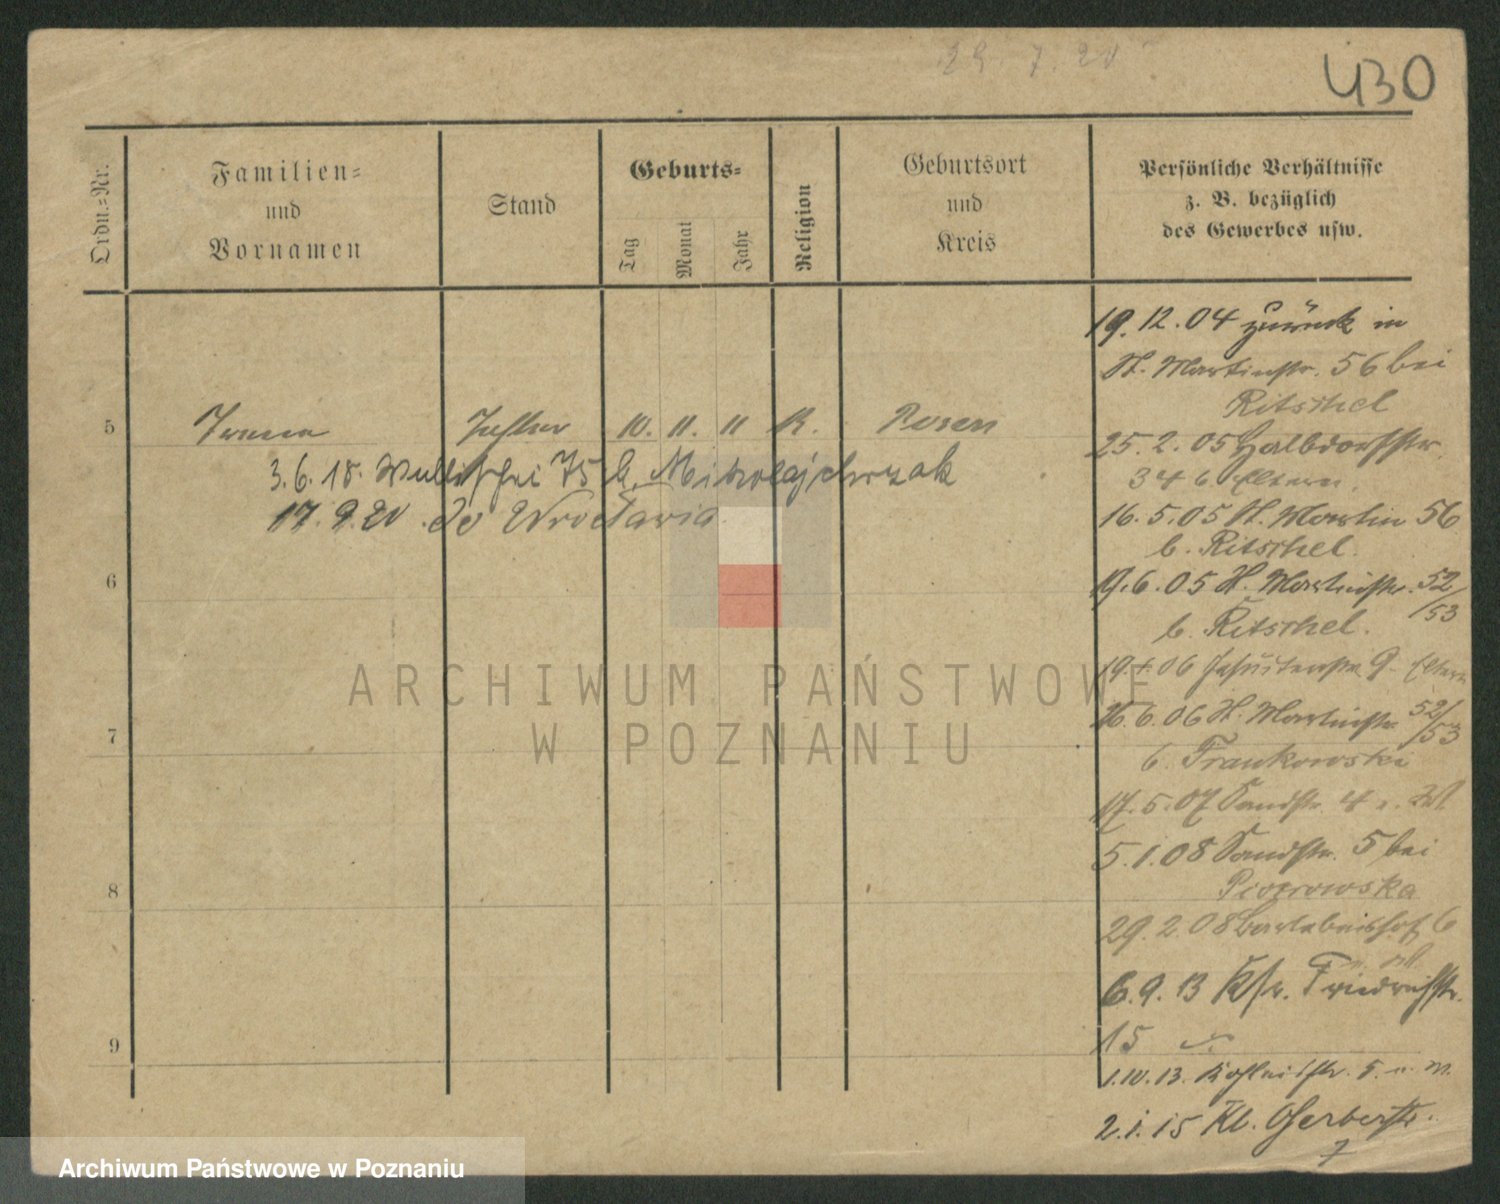 29. 7. 20
430
Ordn.-Nr.
Familien-
und
Vornamen
Stand
Geburts-
Tag
Monat
Jahr
Religion
Geburtsort
und
Kreis
Persönliche Verhältnisse
z. B. bezüglich
des Gewerbes usw.
19. 12. 04 zurück in
St. Martinstr. 56 bei
Ritschel
25. 2. 05 Halbdorfstr.
34 b Eltern.
16. 5. 05 St. Martin 56
b. Ritschel.
19. 6. 05 St. Martinstr. 52/53
b. Ritschel.
06 Jesuitenstr. 9 Eltern
26. 6. 06 St. Martinstr. 52/53
b. Frankowski
17. 5. 07 Sandstr. 4
5. 1. 08 Sandstr. 5 bei
Piotrowska
29. 2. 08 Bartelmeishof 6
6. 9. 13 Ksr. Friedrichstr.
15
1. 10. 13.
2. 1. 15 Kl. Gerberstr.
7
5 Irene Tochter 10. 11. 11 K. Posen
3. 6. 18. 75 b. Mikolajchrzak
17. 9. 20. do Wrocławia.
6
7
8
9
ARCHIWUM PAŃSTWOWE
W POZNANIU
Archiwum Państwowe w Poznaniu